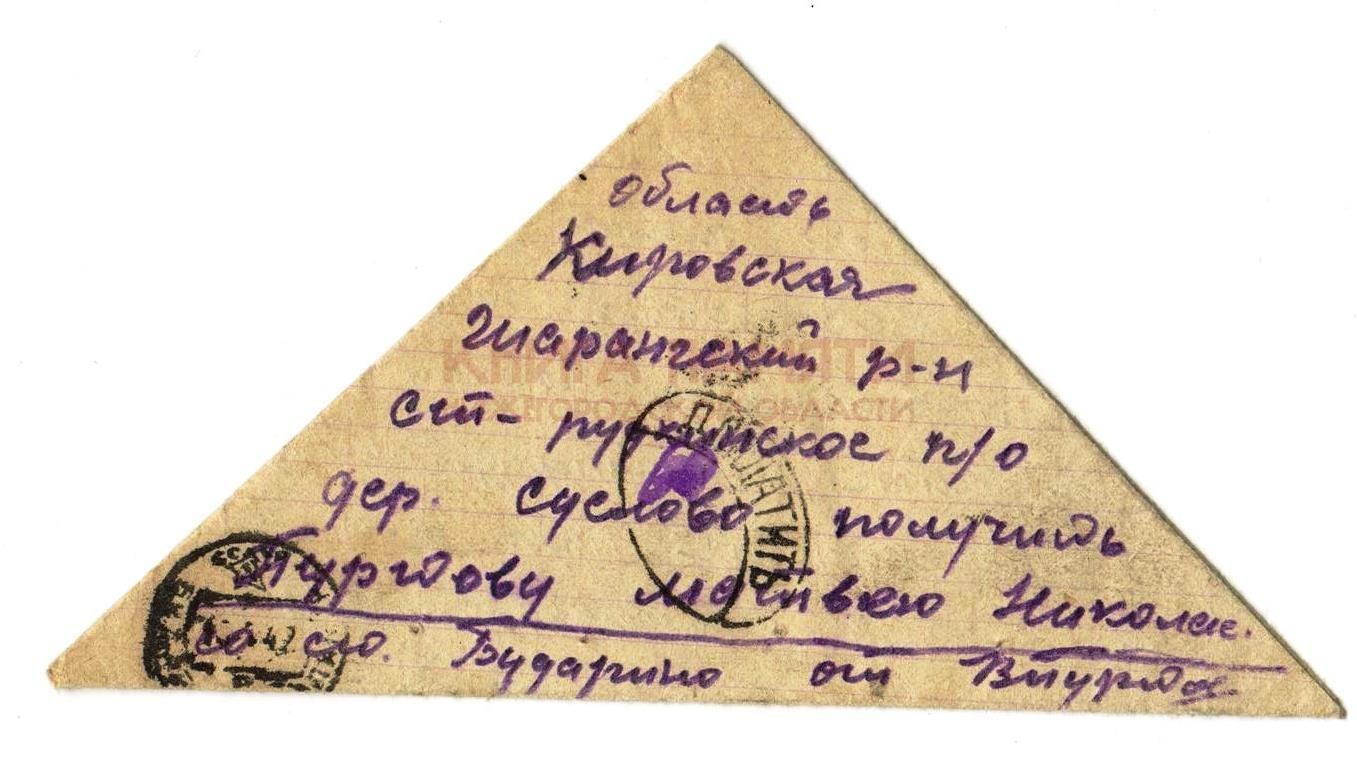 область
Кировская
Шарангский р-н
ст-рудкинское п/о
дер. суслово получить
Пургдову матвею Николае.
со ст. Бударино от
КНИГА ПАМЯТИ
НИЖЕГОРОДСКОЙ ОБЛАСТИ
ДОПЛАТИТЬ
СССР
42